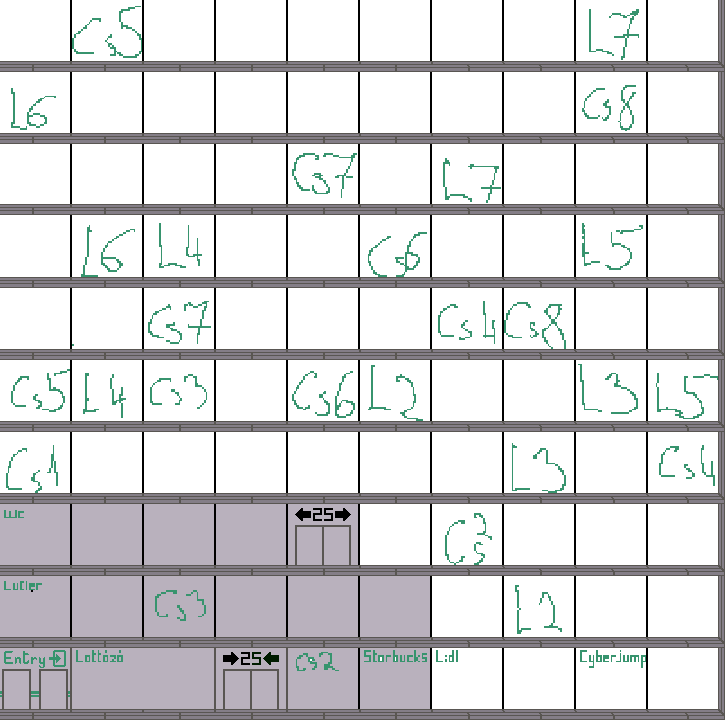 Cs5 L7
L6 Cs8
Cs7 L7
L6 L4 Cs6 L5
Cs7 Cs4 Cs8
Cs5 L4 Cs3 Cs6 L2 L3 L5
Cs1 L3 Cs4
WC ←25→ Cs2
Lutier Cs3 L2
Entry Lottózó →25← Cs2 Starbucks Lidl CyberJump